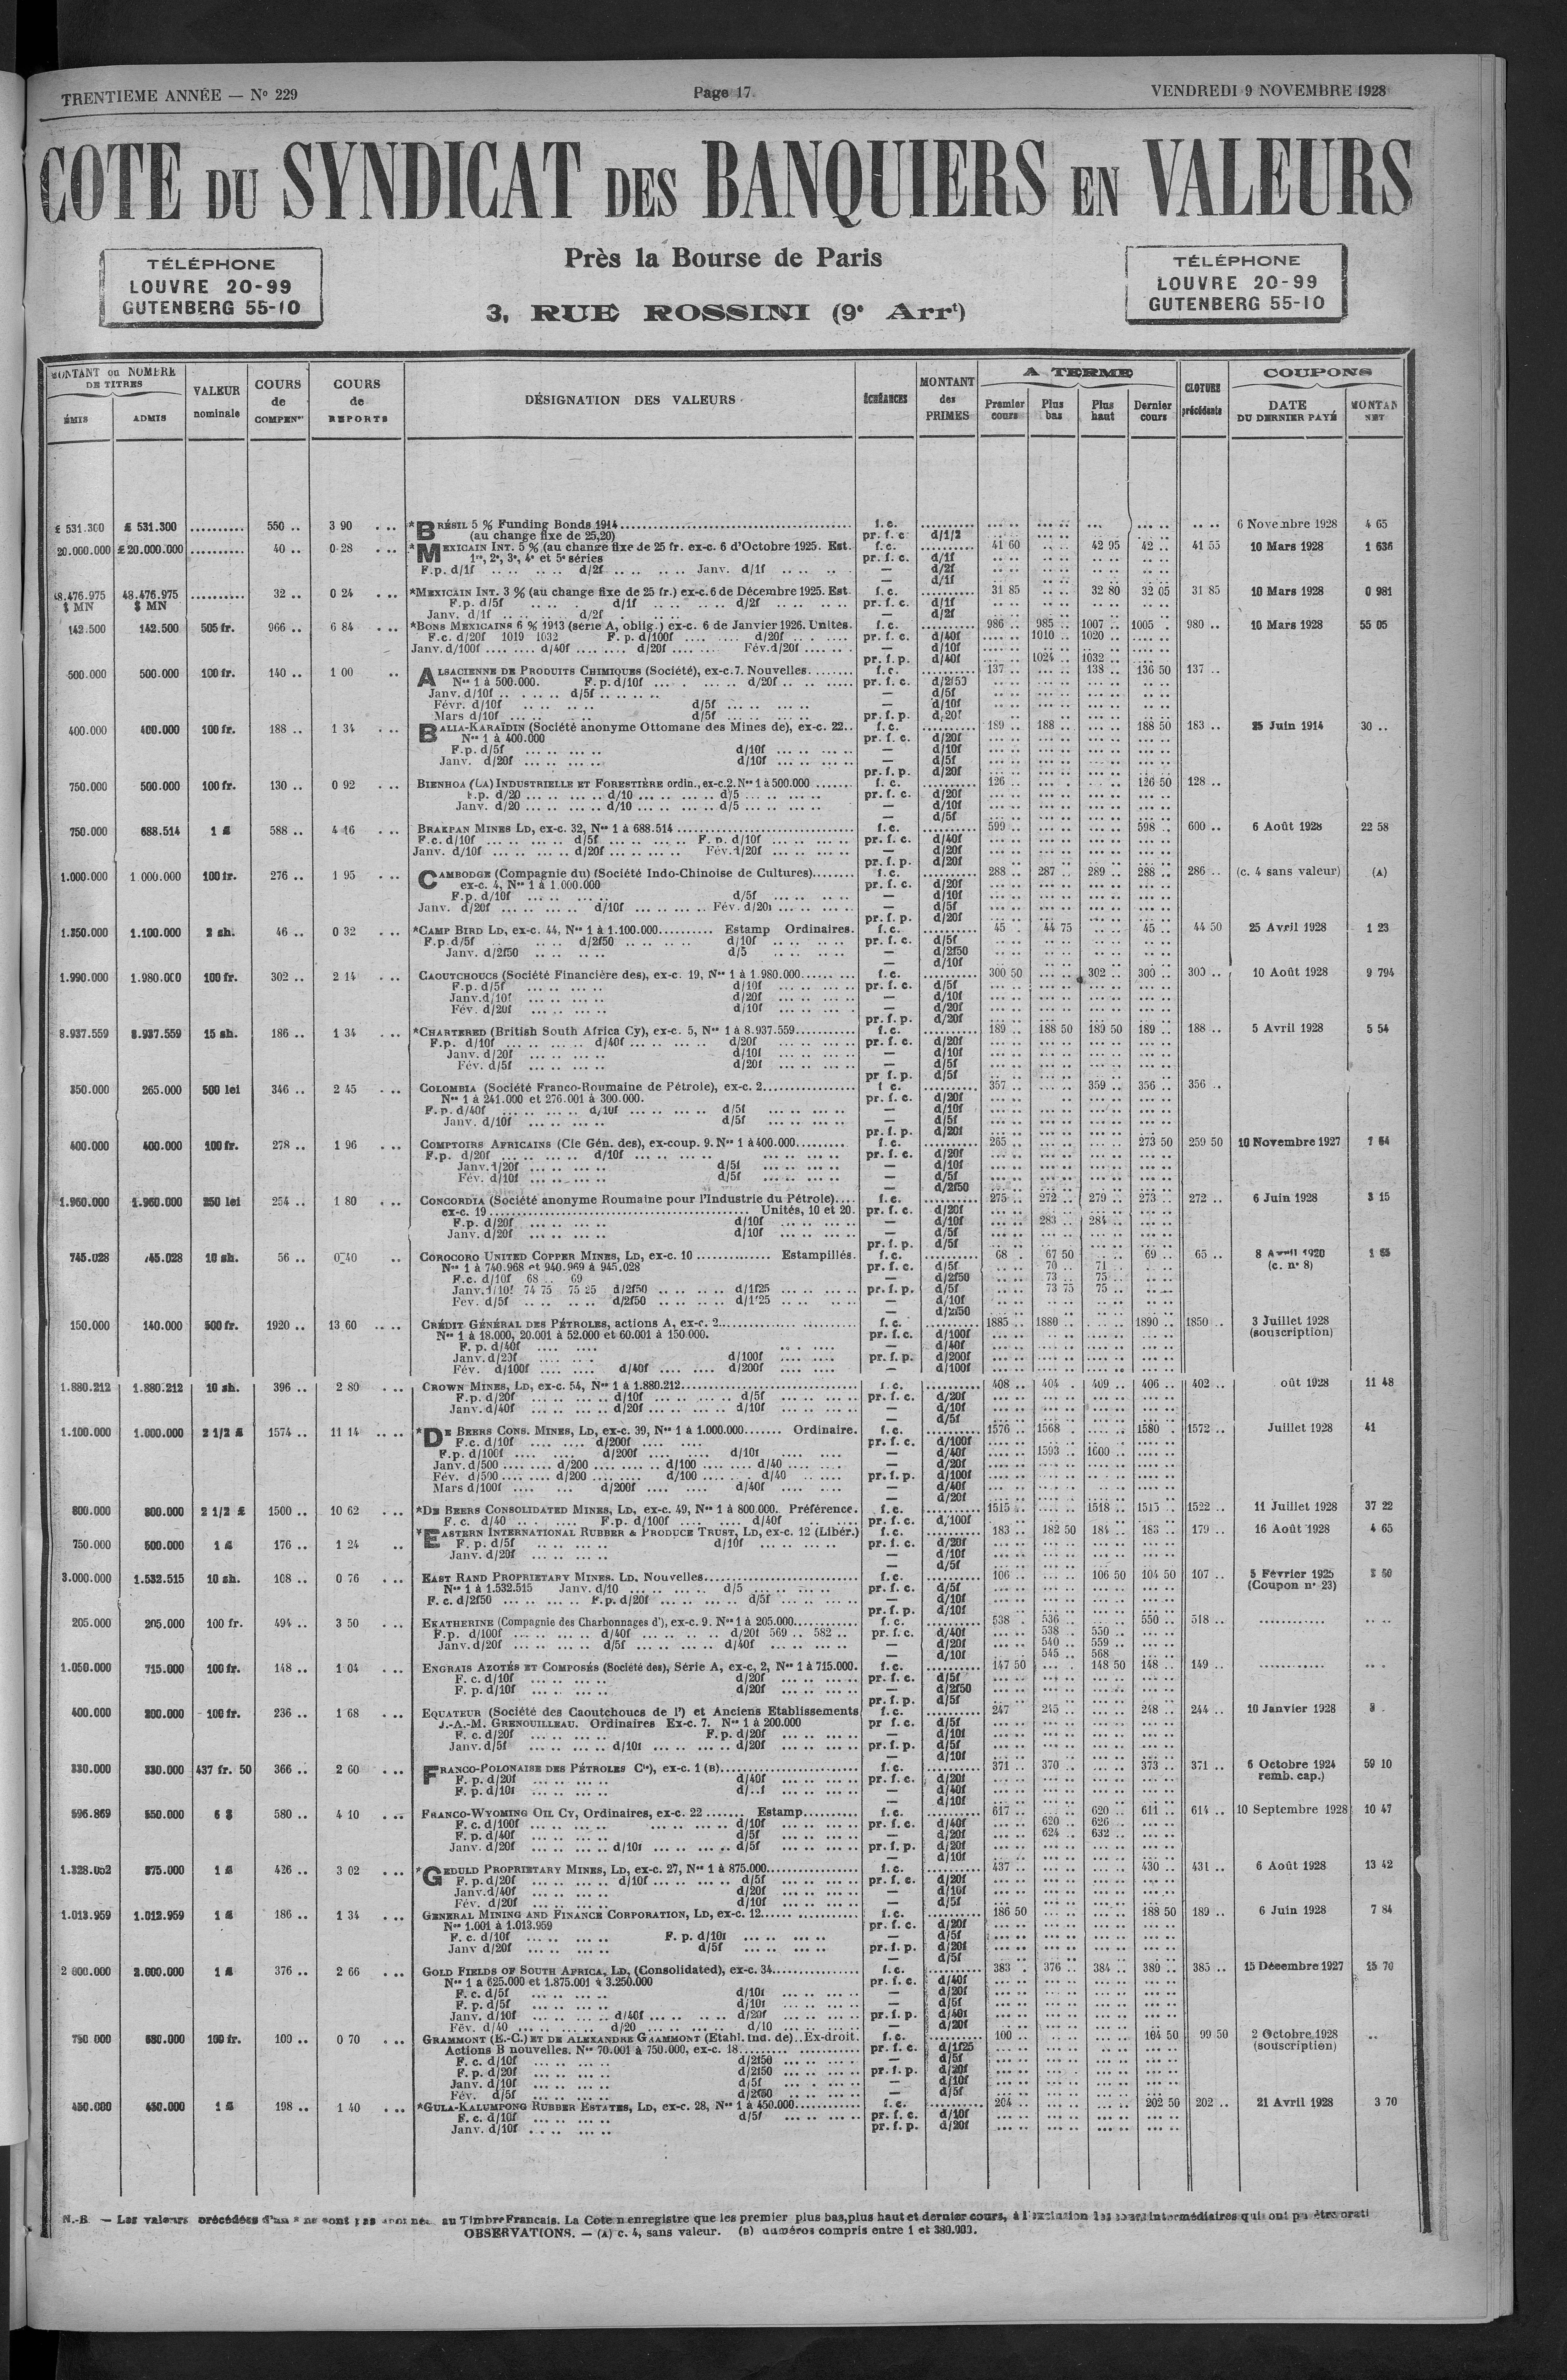 TRENTIEME ANNÉE — No 229
Page 17
VENDREDI 9 NOVEMBRE 1928
COTE DU SYNDICAT DES BANQUIERS EN VALEURS
TÉLÉPHONE
LOUVRE 20-99
GUTENBERG 55-10
Près la Bourse de Paris
3, RUE ROSSINI (9e Arrt)
TÉLÉPHONE
LOUVRE 20-99
GUTENBERG 55-10
MONTANT ou NOMBRE DE TITRES
ÉMIS ADMIS
VALEUR nominale
COURS de COMPENon
COURS de REPORTS
DÉSIGNATION DES VALEURS
ÉCHÉANCES
MONTANT des PRIMES
A TERME
Premier cours Plus bas Plus haut Dernier cours
CLOTURE précédente
COUPONS
DATE DU DERNIER PAYÉ
MONTAN NET
£ 531.300 £ 531.300 .......... 550 .. 3 90 *BRÉSIL 5 % Funding Bonds 1914 f. c. 6 Novembre 1928 4 65
(au change fixe de 25,20) pr. f. c. d/1/2
20.000.000 £ 20.000.000 .......... 40 .. 0 28 *MEXICAIN INT. 5 % (au change fixe de 25 fr. ex-c. 6 d'Octobre 1925. Est. f. c. 41 60 42 95 42 .. 41 55 10 Mars 1928 1 636
1re, 2e, 3e, 4e et 5e séries pr. f. c. d/1f
F.p. d/1f d/2f Janv. d/1f — d/2f
— d/1f
48.476.975 $ MN 48.476.975 $ MN .......... 32 .. 0 24 *MEXICAIN INT. 3 % (au change fixe de 25 fr.) ex-c. 6 de Décembre 1925. Est. f. c. 31 85 32 80 32 05 31 85 10 Mars 1928 0 981
F.p. d/5f d/1f d/2f pr. f. c. d/1f
Janv. d/1f d/2f — d/2f
142.500 142.500 505 fr. 966 .. 6 84 *BONS MEXICAINS 6 % 1913 (série A, oblig.) ex-c. 6 de Janvier 1926. Unités. f. c. 986 .. 985 .. 1007 .. 1005 .. 980 .. 10 Mars 1928 55 05
F.c. d/20f 1019 1032 F. p. d/100f d/20f pr. f. c. d/40f 1010 .. 1020 ..
Janv. d/100f d/40f d/20f Fév. d/20f — d/10f
pr. f. p. d/40f 1024 .. 1032 ..
500.000 500.000 100 fr. 140 .. 1 00 ALSACIENNE DE PRODUITS CHIMIQUES (Société), ex-c. 7. Nouvelles f. c. 137 .. 138 .. 136 50 137 ..
Nos 1 à 500.000. F. p. d/10f d/20f pr. f. c. d/2f50
Janv. d/10f d/5f — d/5f
Févr. d/10f d/5f — d/10f
Mars d/10f d/5f pr. f. p. d/20f
400.000 400.000 100 fr. 188 .. 1 34 BALIA-KARAÏDIN (Société anonyme Ottomane des Mines de), ex-c. 22.. f. c. 189 .. 188 .. 188 50 183 .. 25 Juin 1914 30 ..
Nos 1 à 400.000 pr. f. c. d/20f
F.p. d/5f d/10f — d/10f
Janv. d/20f d/10f — d/5f
pr. f. p. d/20f
750.000 500.000 100 fr. 130 .. 0 92 BIENHOA (LA) INDUSTRIELLE ET FORESTIÈRE ordin., ex-c. 2. Nos 1 à 500.000 f. c. 126 .. 126 50 128 ..
F.p. d/20 d/10 d/5 pr. f. c. d/20f
Janv. d/20 d/10 d/5 — d/10f
— d/5f
750.000 688.514 1 £ 588 .. 4 16 BRAKPAN MINES LD, ex-c. 32, Nos 1 à 688.514 f. c. 599 .. 598 .. 600 .. 6 Août 1928 22 58
F.c. d/10f d/5f F. p. d/10f pr. f. c. d/40f
Janv. d/10f d/20f Fév. d/20f — d/20f
pr. f. p. d/20f
1.000.000 1 000.000 100 fr. 276 .. 1 95 CAMBODGE (Compagnie du) (Société Indo-Chinoise de Cultures) f. c. 288 .. 287 .. 289 .. 288 .. 286 .. (c. 4 sans valeur) (A)
ex-c. 4, Nos 1 à 1.000.000 pr. f. c. d/20f
F.p. d/10f d/5f — d/10f
Janv. d/20f d/10f Fév. d/20f — d/5f
pr. f. p. d/20f
1.350.000 1.100.000 2 sh. 46 .. 0 32 *CAMP BIRD LD, ex-c. 44, Nos 1 à 1.100.000 Estamp Ordinaires. f. c. 45 44 75 45 .. 44 50 25 Avril 1928 1 23
F.p. d/5f d/2f50 d/10f pr. f. c. d/5f
Janv. d/2f50 d/5 — d/2f50
— d/10f
1.990.000 1.980.000 100 fr. 302 .. 2 14 CAOUTCHOUCS (Société Financière des), ex-c. 19, Nos 1 à 1.980.000 f. c. 300 50 302 .. 300 .. 300 .. 10 Août 1928 9 794
F.p. d/5f d/10f pr. f. c. d/5f
Janv. d/10f d/20f — d/10f
Fév. d/20f d/10f — d/20f
pr. f. p. d/20f
8.937.559 8.937.559 15 sh. 186 .. 1 34 *CHARTERED (British South Africa Cy), ex-c. 5, Nos 1 à 8.937.559 f. c. 189 .. 188 50 189 50 189 .. 188 .. 5 Avril 1928 5 54
F.p. d/10f d/40f d/20f pr. f. c. d/20f
Janv. d/20f d/10f — d/10f
Fév. d/5f d/20f — d/5f
pr f. p. d/5f
350.000 265.000 500 lei 346 .. 2 45 COLOMBIA (Société Franco-Roumaine de Pétrole), ex-c. 2 f c. 357 .. 359 .. 356 .. 356 ..
Nos 1 à 241.000 et 276.001 à 300.000. pr. f. c. d/20f
F. p. d/40f d/10f d/5f — d/10f
Janv. d/10f d/5f — d/5f
pr. f. p. d/20f
400.000 400.000 100 fr. 278 .. 1 96 COMPTOIRS AFRICAINS (Cie Gén. des), ex-coup. 9. Nos 1 à 400.000 f. c. 265 .. 273 50 259 50 10 Novembre 1927 7 64
F.p. d/20f d/10f pr. f. c. d/20f
Janv. d/20f d/5f — d/10f
Fév. d/10f d/5f — d/5f
— d/2f50
1.960.000 1.960.000 250 lei 254 .. 1 80 CONCORDIA (Société anonyme Roumaine pour l'Industrie du Pétrole) f. c. 275 .. 272 .. 279 .. 273 .. 272 .. 6 Juin 1928 3 15
ex-c. 19 Unités, 10 et 20. pr. f. c. d/20f
F.p. d/20f d/10f — d/10f 283 .. 284 ..
Janv. d/20f d/10f — d/5f
pr. f. p. d/5f
745.028 745.028 10 sh. 56 .. 0 40 COROCORO UNITED COPPER MINES, LD, ex-c. 10 Estampillés. f. c. 68 67 50 69 .. 65 .. 8 Avril 1920 1 65
Nos 1 à 740.968 et 940.969 à 945.028 pr. f. c. d/5f 70 .. 71 .. (c. no 8)
F.c. d/10f 68 .. 69 — d/2f50 73 .. 75 ..
Janv. d/10f 74 75 75 25 d/2f50 d/1f25 pr. f. p. d/5f 73 75 75 ..
Fév. d/5f d/2f50 d/1f25 — d/10f
— d/2f50
150.000 140.000 500 fr. 1920 .. 13 60 CRÉDIT GÉNÉRAL DES PÉTROLES, actions A, ex-c. 2 f. c. 1885 .. 1880 .. 1890 .. 1850 .. 3 Juillet 1928
Nos 1 à 18.000, 20.001 à 52.000 et 60.001 à 150.000. pr. f. c. d/100f (souscription)
F. p. d/40f — d/40f
Janv. d/20f d/100f pr. f. p. d/200f
Fév. d/100f d/40f d/200f — d/100f
1.880.212 1.880.212 10 sh. 396 .. 2 80 CROWN MINES, LD, ex-c. 54, Nos 1 à 1.880.212 f. c. 408 .. 404 409 .. 406 .. 402 .. oût 1928 11 48
F.p. d/20f d/10f d/5f pr. f. c. d/20f
Janv. d/40f d/20f d/10f — d/10f
— d/5f
1.100.000 1.000.000 2 1/2 £ 1574 .. 11 14 *DE BEERS CONS. MINES, LD, ex-c. 39, Nos 1 à 1.000.000 Ordinaire. f. c. 1576 .. 1568 1580 1572 .. Juillet 1928 41
F.c. d/10f d/200f pr. f. c. d/100f
F.p. d/100f d/200f d/10f — d/40f 1593 .. 1600 ..
Janv. d/500 d/200 d/100 d/40 — d/20f
Fév. d/500 d/200 d/100 d/40 pr. f. p. d/100f
Mars d/100f d/200f d/40f — d/40f
— d/20f
800.000 800.000 2 1/2 £ 1500 .. 10 62 *DE BEERS CONSOLIDATED MINES, LD, ex-c. 49, Nos 1 à 800.000. Préférence. f. c. 1515 .. 1518 .. 1515 .. 1522 .. 11 Juillet 1928 37 22
F. c. d/40 F.p. d/100f d/40f pr. f. c. d/100f
750.000 500.000 1 £ 176 .. 1 24 *EASTERN INTERNATIONAL RUBBER & PRODUCE TRUST, LD, ex-c. 12 (Libér.) f. c. 183 .. 182 50 184 .. 183 .. 179 .. 16 Août 1928 4 65
F. p. d/5f d/10f pr. f. c. d/20f
Janv. d/20f — d/10f
— d/5f
3.000.000 1.532.515 10 sh. 108 .. 0 76 EAST RAND PROPRIETARY MINES. LD. Nouvelles f. c. 106 .. 106 50 104 50 107 .. 5 Février 1925
Nos 1 à 1.532.515 Janv. d/10 d/5 pr. f. c. d/5f (Coupon no 23)
F. c. d/2f50 F.p. d/20f d/5f — d/10f
pr. f. p. d/10f
205.000 205.000 100 fr. 494 .. 3 50 EKATHERINE (Compagnie des Charbonnages d'), ex-c. 9. Nos 1 à 205.000 f. c. 538 536 .. 550 .. 518 ..
F.p. d/100f d/40f d/20f 569 .. 582 .. pr. f. c. d/40f 538 .. 550 ..
Janv. d/20f d/5f d/40f — d/20f 540 .. 559 ..
— d/10f 545 .. 568
1.050.000 715.000 100 fr. 148 .. 1 04 ENGRAIS AZOTÉS ET COMPOSÉS (Société des), Série A, ex-c, 2, Nos 1 à 715.000. f. c. 147 50 148 50 148 .. 149 ..
F. c. d/10f d/20f pr. f. c. d/5f
F. p. d/10f d/20f — d/2f50
pr. f. p. d/5f
400.000 200.000 100 fr. 236 .. 1 68 EQUATEUR (Société des Caoutchoucs de l') et Anciens Etablissements f. c. 247 245 .. 248 .. 244 .. 10 Janvier 1928 8
J.-A.-M. GRENOUILLEAU. Ordinaires Ex-c. 7. Nos 1 à 200.000 pr f. c. d/5f
F. c. d/20f F. p. d/20f — d/10f
Janv. d/5f d/10f d/20f pr. f. p. d/5f
— d/10f
330.000 330.000 437 fr. 50 366 .. 2 60 FRANCO-POLONAISE DES PÉTROLES Cie), ex-c. 1 (B) f. c. 371 .. 370 .. 373 .. 371 .. 6 Octobre 1924 59 10
F. p. d/20f d/40f pr. f. c. d/20f remb. cap.)
F. p. d/10f — d/40f
— d/10f
596.869 550.000 6 $ 580 .. 4 10 FRANCO-WYOMING OIL CY, Ordinaires, ex-c. 22 Estamp f. c. 617 .. 620 .. 611 .. 614 .. 10 Septembre 1928 10 47
F. c. d/100f d/10f pr. f. c. d/40f 620 .. 626 ..
F. p. d/40f d/5f — d/20f 624 .. 632 ..
Janv. d/20f d/10f d/5f pr. f. p. d/20f
— d/10f
1.328.052 875.000 1 £ 426 .. 3 02 *GEDULD PROPRIETARY MINES, LD, ex-c. 27, Nos 1 à 875.000 f. c. 437 .. 430 .. 431 .. 6 Août 1928 13 42
F. p. d/20f d/10f d/5f pr. f. c. d/20f
Janv. d/40f d/20f — d/10f
Fév. d/20f d/10f — d/5f
1.013.959 1.012.959 1 £ 186 .. 1 34 GENERAL MINING AND FINANCE CORPORATION, LD, ex-c. 12 f. c. 186 50 188 50 189 .. 6 Juin 1928 7 84
Nos 1.001 à 1.013.959 pr. f. c. d/20f
F. c. d/10f F. p. d/10f — d/5f
Janv d/20f d/5f pr. f. p. d/20f
— d/5f
2 800.000 2.000.000 1 £ 376 .. 2 66 GOLD FIELDS OF SOUTH AFRICA, LD, (Consolidated), ex-c. 34 f. c. 383 376 .. 384 .. 380 .. 385 .. 15 Décembre 1927 15 70
Nos 1 à 625.000 et 1.875.001 à 3.250.000 pr. f. c. d/40f
F. c. d/5f d/10f — d/20f
F. p. d/5f d/10f — d/5f
Janv. d/10f d/40f d/20f pr. f. p. d/40f
Fév. d/40 d/20 d/10 — d/20f
750 000 680.000 100 fr. 100 .. 0 70 GRAMMONT (E.-C.) ET DE ALEXANDRE GRAMMONT (Etabl. Ind. de)..Ex-droit. f. c. 100 .. 104 50 99 50 2 Octobre 1928
Actions B nouvelles. Nos 70.001 à 750.000, ex-c. 18 pr. f. c. d/1f25 (souscription)
F. c. d/10f d/2f50 — d/5f
F. p. d/20f d/2f50 pr. f. p. d/20f
Janv. d/10f d/5f — d/10f
Fév. d/5f d/2f50 — d/5f
450.000 450.000 1 £ 198 .. 1 40 *GULA-KALUMPONG RUBBER ESTATES, LD, ex-c. 28, Nos 1 à 450.000 f. c. 204 .. 202 50 202 .. 21 Avril 1928 3 70
F. c. d/10f d/5f pr. f. c. d/10f
Janv. d/10f pr. f. p. d/20f
N.-B. — Les valeurs précédées d'un * ne sont pas au Timbre Francais. La Cote n enregistre que les premier plus bas, plus haut et dernier cours, à l'exclusion les cours intermédiaires qui ont pu être
OBSERVATIONS. — (A) c. 4, sans valeur. (B) numéros compris entre 1 et 380.000.